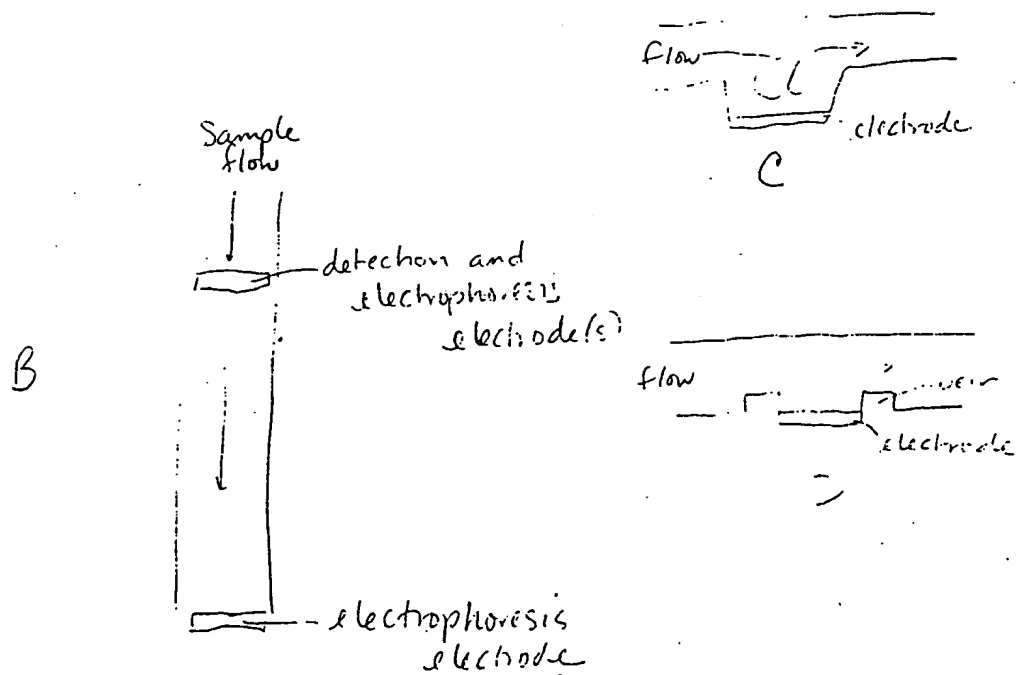 flow
electrode
C
Sample
flow
detection and
electrophoresis
electrode(s)
B
flow
weir
electrode
D
electrophoresis
electrode